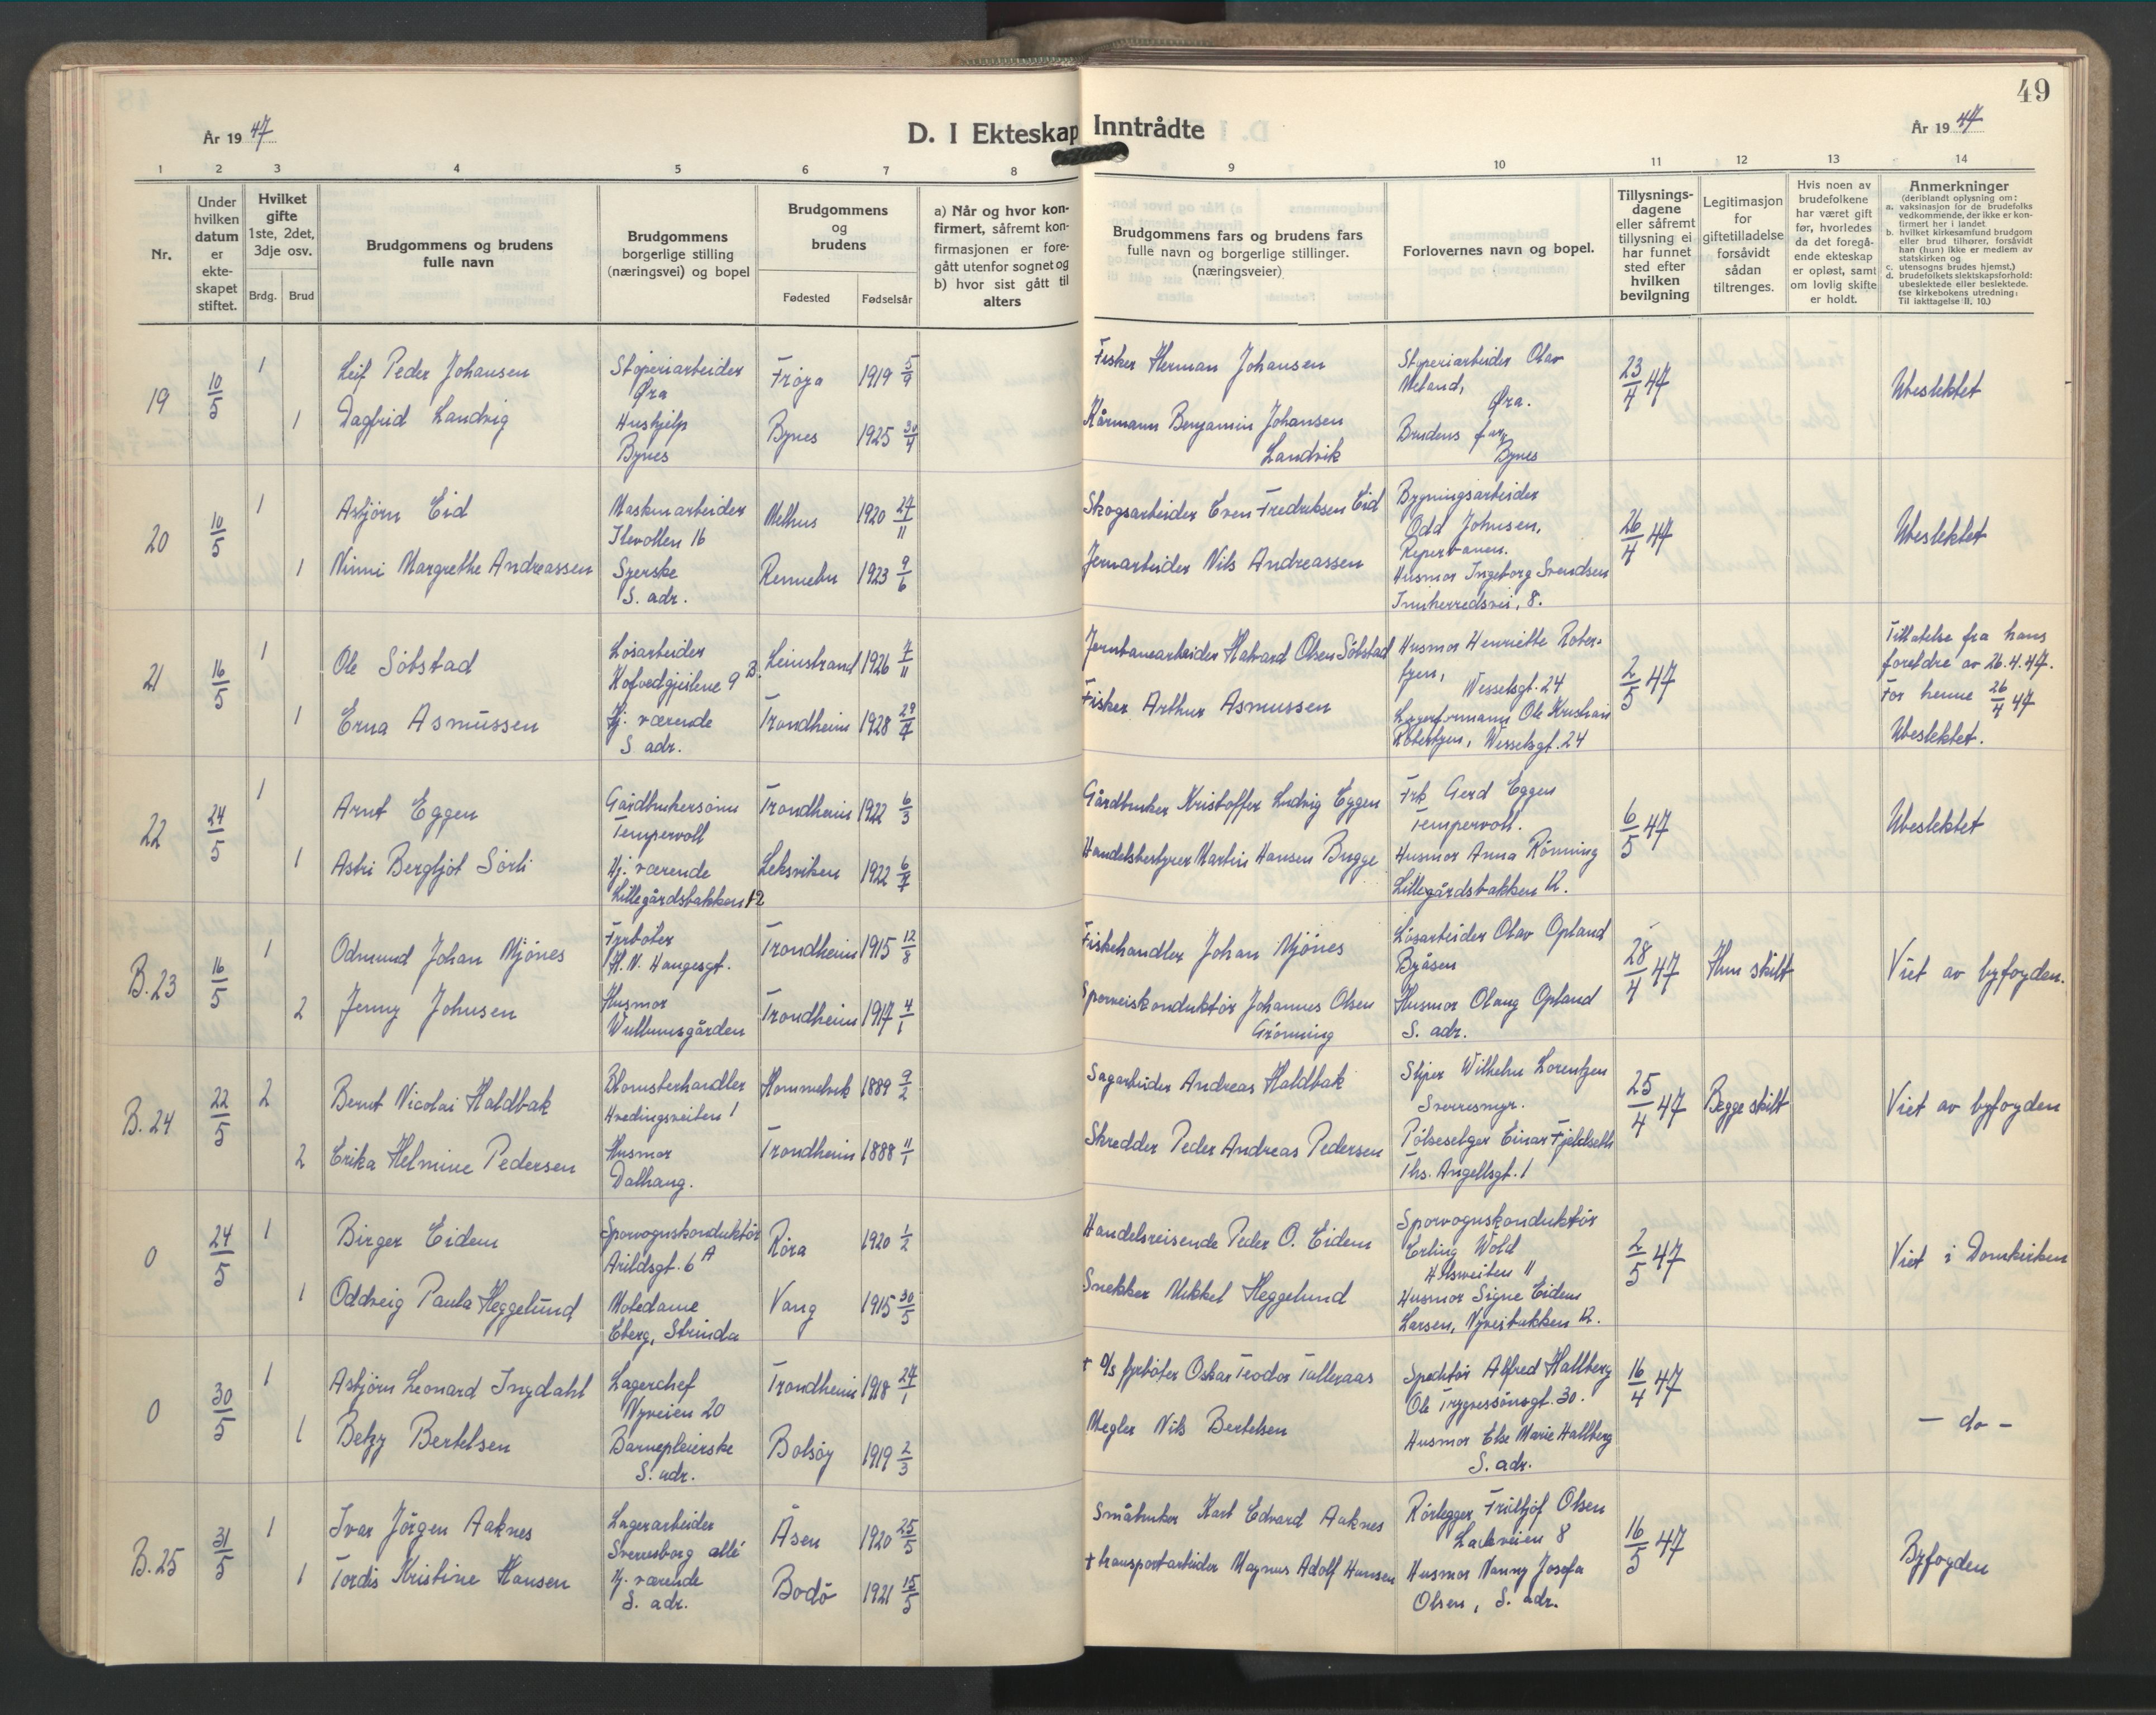 49
År 1947
D. I Ekteskap Inntrådte
År 1947
1 2 3 4 5 6 7 8 9 10 11 12 13 14
Nr.
Under
hvilken
datum
er
ekte-
skapet
stiftet.
Hvilket
gifte
1ste, 2det,
3dje osv.
Brdg. Brud
Brudgommens og brudens
fulle navn
Brudgommens
borgerlige stilling
(næringsvei) og bopel
Brudgommens
og
brudens
Fødested Fødselsår
a) Når og hvor kon-
firmert, såfremt kon-
firmasjonen er fore-
gått utenfor sognet og
b) hvor sist gått til
alters
Brudgommens fars og brudens fars
fulle navn og borgerlige stillinger.
(næringsveier)
Forlovernes navn og bopel.
Tillysnings-
dagene
eller såfremt
tillysning ei
har funnet
sted efter
hvilken
bevilgning
Legitimasjon
for
giftetilladelse
forsåvidt
sådan
tiltrenges.
Hvis noen av
brudefolkene
har været gift
før, hvorledes
da det foregå-
ende ekteskap
er opløst, samt
om lovlig skifte
er holdt.
Anmerkninger
(deriblandt oplysning om:
a. vaksinasjon for de brudefolks
vedkommende, der ikke er kon-
firmert her i landet
b. hvilket kirkesamfund brudgom
eller brud tilhører, forsåvidt
han (hun) ikke er medlem av
statskirken og
c. utensogns brudes hjemst.)
d. brudefolkets slektskapsforhold:
ubeslektede eller beslektede.
(se kirkebokens utredning:
Til iakttagelse II. 10.)
19 10/5 1 Leif Peder Johansen Støperiarbeider Øra Frøya 1919 5/9 Fisker Herman Johansen Støperiarbeider Olav Meland, Øra. 23/4 47 Ubeslektet
1 Dagfrid Landvig Hushjelp Bynes Bynes 1925 30/4 Kårmann Benjamin Johansen Landvik Brudens far, Bynes
20 10/5 1 Asbjörn Eid Maskinarbeider Ilevollen 16 Melhus 1920 27/11 Skogsarbeider Even Fredriksen Eid Bygningsarbeider Odd Johnsen, Reperbanen. 26/4 47 Ubeslektet
1 Ninni Margrethe Andreassen Syerske S. adr. Rennebu 1923 9/6 Jernarbeider Nils Andreassen Husmor Ingeborg Svendsen Innherredsvei, 8.
21 16/5 1 Ole Söbstad Løsarbeider 9 B. Leinstrand 1926 7/11 Jernbanearbeider Halvard Olsen Söbstad Husmor Henriette Robertzen, Wesselsgt. 24 2/5 47 Tillatelse fra hans foreldre av 26.4.47. For henne 26/4 47 Ubeslektet.
1 Erna Asmussen Hj. værende S adr. Trondheim 1928 29/7 Fisker Arthur Asmussen Lagerformann Ole Kristian Robertzen, Wesselsgt. 24
22 24/5 1 Arnt Eggen Gårdbrukersönn Tempervoll Trondheim 1922 6/3 Gårdbruker Kristoffer Ludvig Eggen Frk Gerd Eggen Tempervoll. 6/5 47 Ubeslektet
1 Astri Bergljot Sörli Hj. værende Lillegårdsbakken 12 Leksviken 1922 6/7 Handelsbestyrer Martin Hansen Bugge Husmor Anna Rönning Lillegårdsbakken 12.
B.23 16/5 1 Odmund Johan Mjönes Fyrböter H. N. Haugesgt. Trondheim 1915 12/8 Fiskehandler Johan Mjönes Løsarbeider Olav Opland Byåsen 28/4 47 Hun skilt Viet av byfogden.
2 Jenny Johnsen Husmor Wullumsgården Trondheim 1917 4/1 Sporveiskonduktör Johannes Olsen Grönning Husmor Olaug Opland S. adr.
B.24 22/5 2 Bernt Nicolai Haldbak Blomsterhandler Hvedingsveiten 1 Hommelvik 1889 9/2 Sagarbeider Andreas Haldbak Sliper Wilhelm Lorentzen Sverresmyr. 25/4 47 Begge skilt Viet av byfogden
2 Erika Helmine Pedersen Husmor Dalhaug. Trondheim 1888 11/1 Skredder Peder Andreas Pedersen Pölseselger Einar Fjeldseth Ths. Angellsgt. 1
0 24/5 1 Birger Eidem Sporvognskonduktör Arildsgt. 6 A Röra 1920 1/2 Handelsreisende Peder O. Eidem Sporvognskonduktör Erling Wold 11 2/5 47 Viet i Domkirken
1 Oddveig Paula Heggelund Motedame Eberg, Strinda Vang 1915 30/5 Snekker Mikkel Heggelund Husmor Signe Eidem Larsen, Nyveibakken 12.
0 30/5 1 Asbjörn Leonard Ingdahl Lagerchef Nyveien 20 Trondheim 1918 27/1 + D/s fyrböter Oskar Teodor Talleraas Alfred Hallberg Ole Trygvessönsgt. 30. 16/4 47 — do —
1 Betzy Bertelsen Barnepleierske S. adr. Bolsöy 1919 2/3 Megler Nils Bertelsen Husmor Else Marie Hallberg S. adr.
B.25 31/5 1 Ivar Jörgen Aaknes Lagerarbeider Sverresborg allé Åsen 1920 25/5 Småbruker Karl Edvard Aaknes Rörlegger Fridtjof Olsen 8 16/5 47 Byfogden
1 Tordis Kristine Hansen Hj. værende S. adr. Bodö 1921 15/5 + transportarbeider Magnus Adolf Hansen Husmor Nanny Josefa Olsen, S. adr.